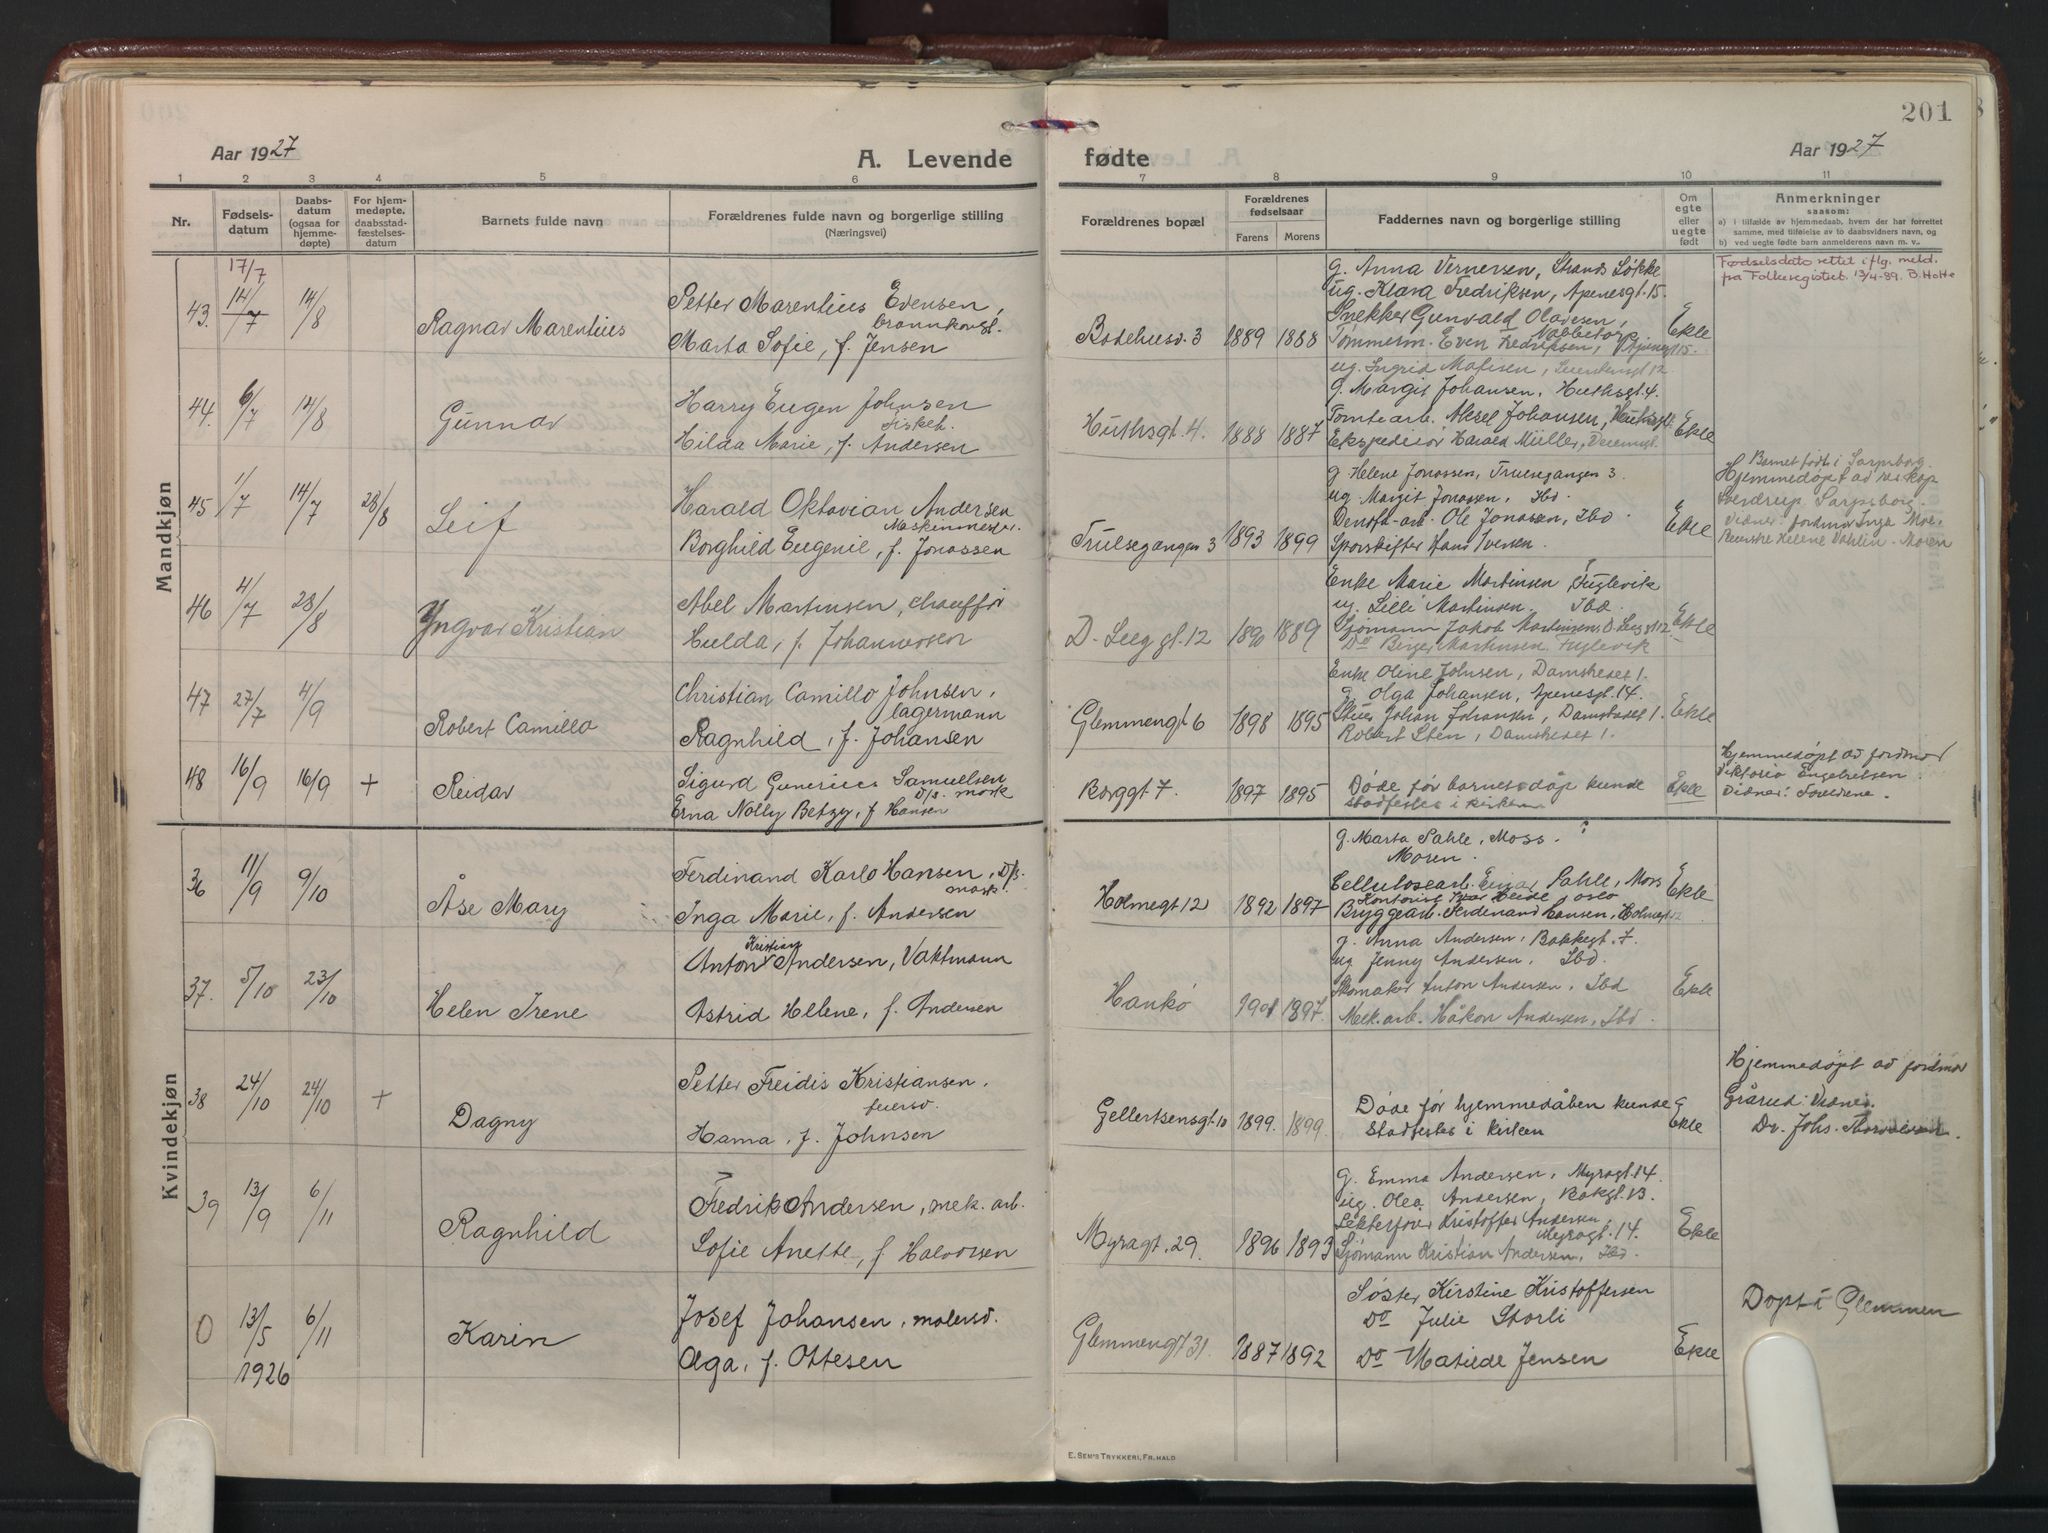 201
Aar 1927
A. Levende
fødte
Aar 1927
1 2 3 4 5 6 7 8 9 10 11
Nr.
Fødsels-
datum
Daabs-
datum
(ogsaa for
hjemme-
døpte)
For hjem-
medøpte,
daabsstad-
fæstelses-
datum
Barnets fulde navn
Forældrenes fulde navn og borgerlige stilling
(Næringsvei)
Forældrenes bopæl
Forældrenes
fødselsaar
Farens Morens
Faddernes navn og borgerlige stilling
Om
egte
eller
uegte
født
Anmerkninger
saasom:
a) i tilfælde av hjemmedaab, hvem der har forrettet
samme, med tilføielse av to daabsvidners navn, og
b) ved uegte fødte barn anmelderens navn m. v.
Mandkjøn
43. 17/7 14/7 14/8
Ragnar Marentius
Petter Marentius Evensen,
brannkonst.
Marta Sofie, f. Jensen
Bodehusv. 3 1889 1888
g. Anna Vernersen, Strands Løkke
ug. Klara Fredriksen, Apenesgt. 15.
Snekker Gunvald Olavesen,
Nabbetorp
Tømmerm. Even Fredriksen, Apenesgt 15
Ekte
Fødselsdato rettet iflg. meld.
fra Folkeregistret 13/4-89. B. Holte
44. 6/7 14/8
Gunnar
Harry Eugen Johnsen
fiskeh.
Hilda Marie, f. Andersen
Huthsgt. 4. 1888 1887
ug. Ingrid Matisen,
g. Margit Johansen, Huthsgt. 4.
Tomtearb. Aksel Johansen, Huthsgt.
Ekspeditør Harald Müller,
Ekte
45 1/7 14/7 28/8
Leif
Harald Oktavian Andersen
Maskinmester.
Borghild Eugenie, f. Jonassen
Trulsegangen 3 1893 1899
g. Helene Jonassen, Trulsegangen 3.
ug. Margit Jonassen, Ibd.
Denofa-arb. Ole Jonassen, Ibd.
Sporskifter Hans Iversen.
Ekte
Barnet født i Sarpsborg.
Hjemmedøpt av res. kap
Sverdrup Sarpsborg.
Vidner: Jordmor Inga Moe,
Helene Dahlin. Moren
46 4/7 28/8
Yngvar Kristian
Abel Martinsen, chauffør
Hulda, f. Johannessen
D. Leeggt. 12 1890 1889
Enke Marie Martinsen Fuglevik
ug. Lilli Martinsen. Ibd.
Sjømann Jakob Martinsen, D. Leegt 12
Do Birger Martinsen. Fuglevik
Ekte
47 27/7 4/9
Robert Camillo
Christian Camillo Johnsen,
lagermann
Ragnhild, f. Johansen
Glemmengt 6 1898 1895
Enke Oline Johnsen, Damstedet 1.
g. Olga Johansen, Apenesgt. 14.
Stuer Johan Johansen, Damstedet 1.
Robert Sten, Damstedet 1.
Ekte
48 16/9 16/9 +
Reidar
Sigurd Gunerius Samuelsen
D/s. mask
Erna Nolly Betzy, f Hansen
Borggt 7. 1897 1895
Døde før barnets dåp kunde
stadfestes i kirken
Ekte
Hjemmedøpt av jordmor
Viktoria Engebretsen.
Vidner: Foreldrene.
Kvindekjøn
36 11/9 9/10
Åse Mary
Ferdinand Karlo Hansen, D/s.
mask.
Inga Marie, f. Andersen
Holmegt 12 1892 1897
g. Marta Sahle, Moss.
Moren.
Cellulosearb. Einar Sahle, Moss
Kontorist Heide Oslo
Bryggearb. Ferdinand Hansen, Holmegt 12
Ekte
37. 5/10 23/10
Helen Irene
Kristian
Anton Andersen, Vaktmann
Astrid Hellene, f. Andersen
Hankø 1901 1897.
g. Anna Andersen, Bakkegt. 7.
ug. Jenny Andersen, Ibd.
Skomaker Anton Andersen, Ibd
Mek. arb. Håkon Andersen, Ibd.
Ekte
38 24/10 24/10 +
Dagny
Petter Freidis Kristiansen,
feiersv.
Hanna, f. Johnsen
Gellertsensgt. 10 1899. 1899.
Døde før hjemmedåben kunde
stadfestes i kirken
Ekte
Hjemmedøpt av jordmor
Grårud. Vidne:
Dr. Johs.
39 13/9 6/11
Ragnhild
Fredrik Andersen, mek. arb.
Sofie Anette, f. Halvorsen
Myragt. 29. 1896 1893
g. Emma Andersen, Myragt. 14.
ug. Olea Andersen, Bakgt. 13.
Lekterfører Kristoffer Andersen,
Myragt. 14.
Sjømann Kristian Andersen, Ibd.
Ekte
0 13/5 1926 6/11
Karin
Josef Johansen, malersv.
Olga, f. Ottesen
Glemmengt 31. 1887 1892
Søster Kirstine Kristoffersen
Do Julie Storli
Do Matilde Jensen
Ekte
Døpt i Glemmen
E. Sem's Trykkeri, Fr.hald